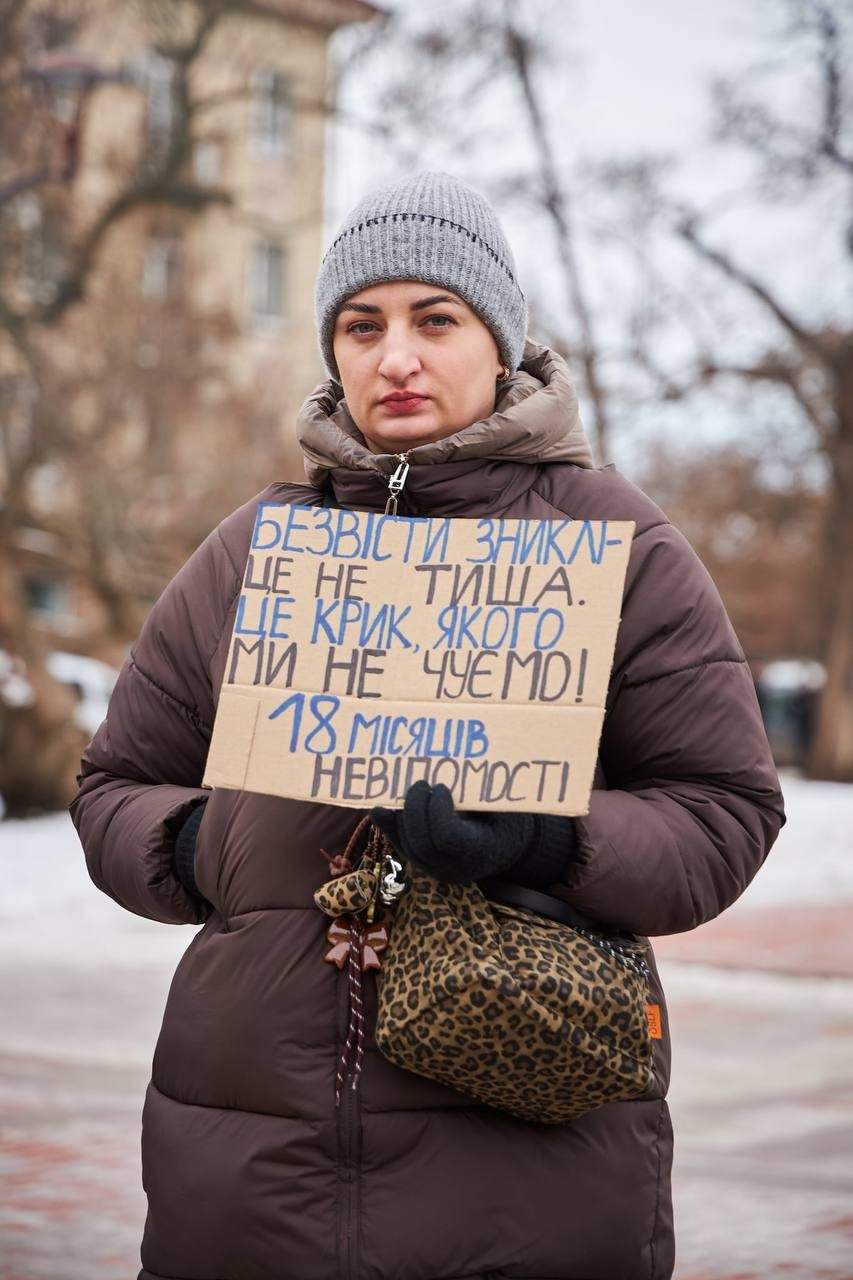 БЕЗВІСТИ ЗНИКЛІ-
ЦЕ НЕ ТИША.
ЦЕ КРИК, ЯКОГО
МИ НЕ ЧУЄМО!
18 МІСЯЦІВ
НЕВІДОМОСТІ